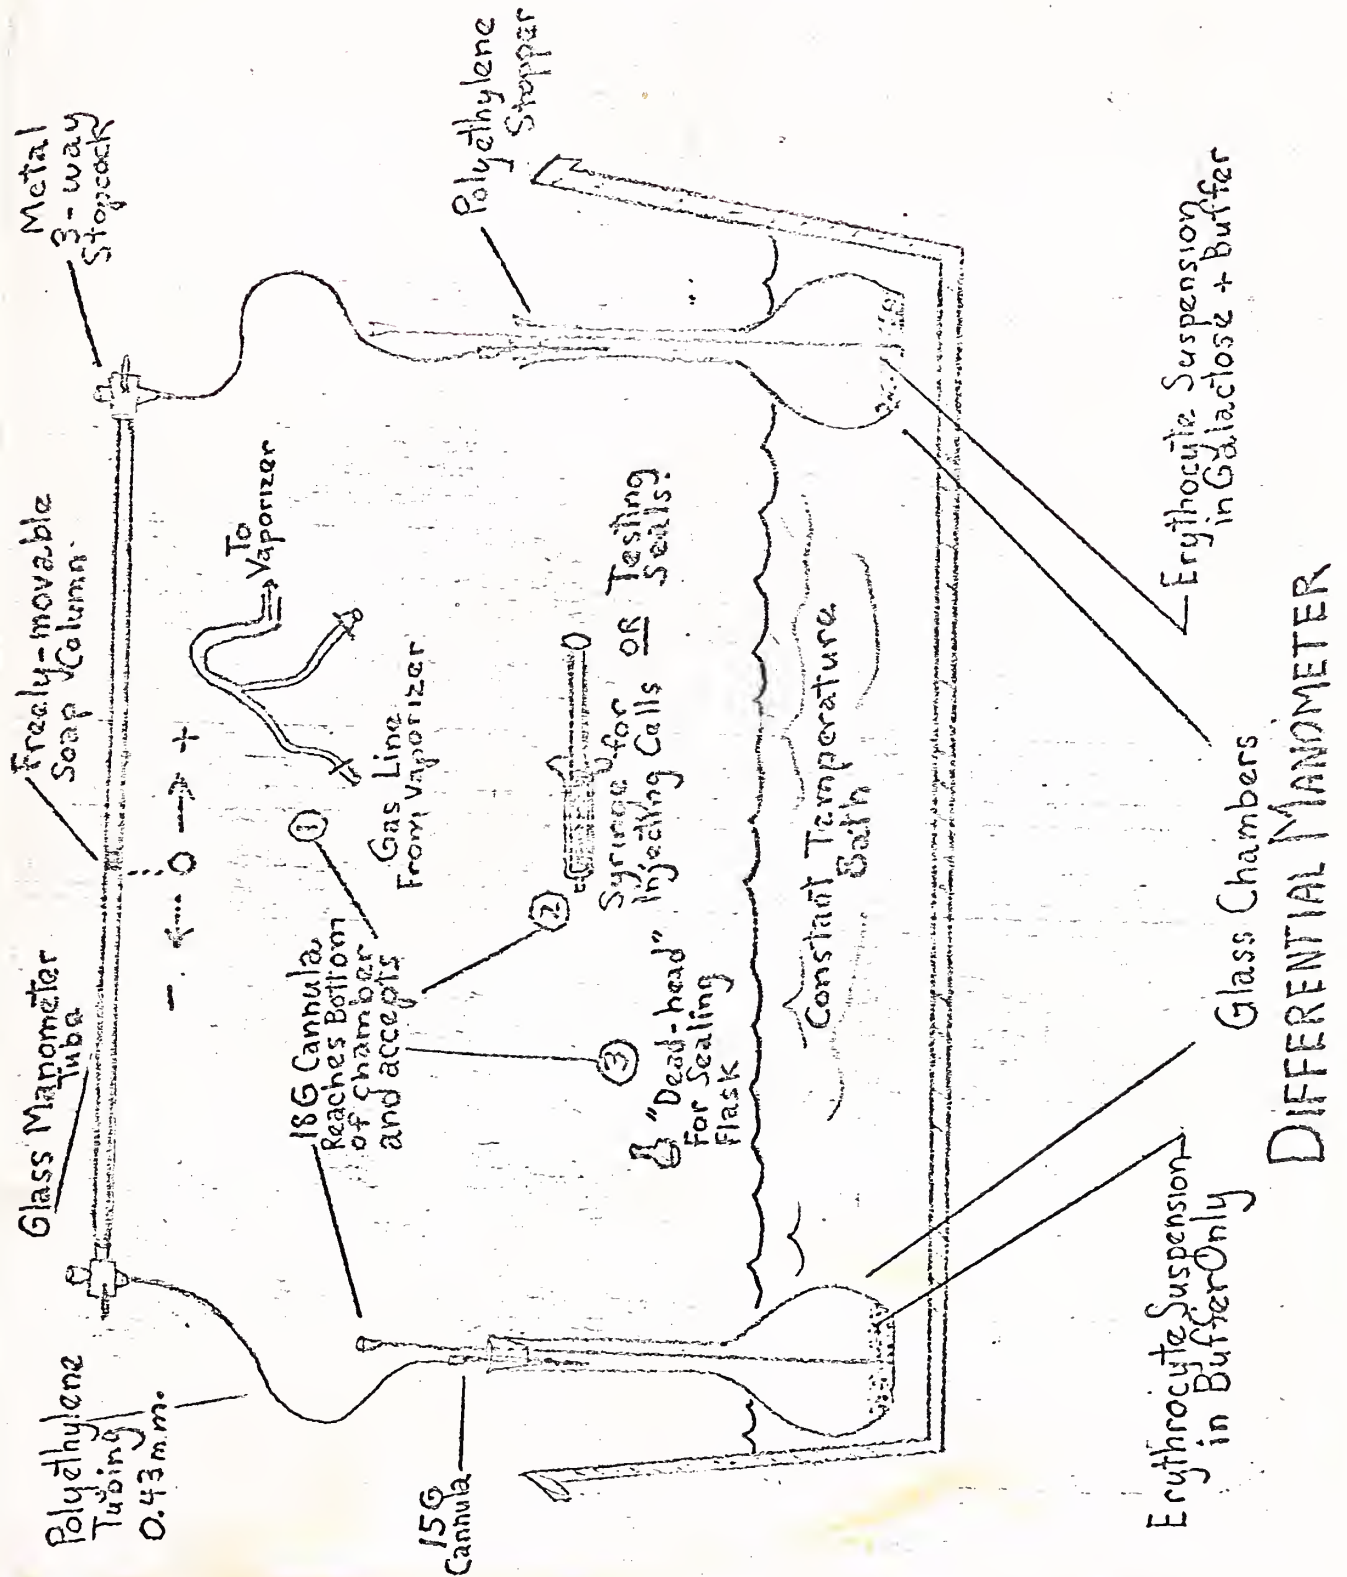 Polyethylene
Tubing
0.43 m.m.
Glass Manometer
Tube
Freely-movable
Soap Column
Metal
3-way
Stopcock
- ← O → +
15G
Cannula
18G Cannula
Reaches Bottom
of chamber
and accepts
①
Gas Line
From Vaporizer
To
Vaporizer
②
Syringe for
Injecting Cells OR Testing
Seals.
③
"Dead-head"
For Sealing
Flask
Polyethylene
Stopper
Constant Temperature
Bath
Erythrocyte Suspension
in Buffer Only
Glass Chambers
Erythocyte Suspension
in Galactose + Buffer
DIFFERENTIAL MANOMETER